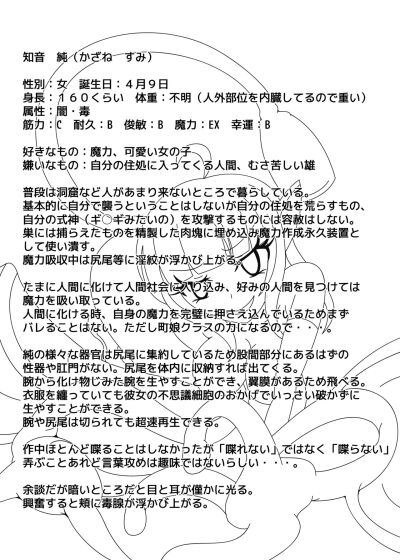 知音　純（かざね　すみ）
性別：女　誕生日：４月９日
身長：１６０くらい　体重：不明（人外部位を内臓してるので重い）
属性：闇・毒
筋力：C　耐久：B　俊敏：B　魔力：EX　幸運：B
好きなもの：魔力、可愛い女の子
嫌いなもの：自分の住処に入ってくる人間、むさ苦しい雄
普段は洞窟など人があまり来ないところで暮らしている。
基本的に自分で襲うということはしないが自分の住処を荒らすもの、
自分の式神（ギ○ギみたいの）を攻撃するものには容赦はしない。
巣には捕らえたものを精製した肉塊に埋め込み魔力作成永久装置と
して使い潰す。
魔力吸収中は尻尾等に淫紋が浮かび上がる。
たまに人間に化けて人間社会に入り込み、好みの人間を見つけては
魔力を吸い取っている。
人間に化ける時、自身の魔力を完璧に押さえ込んでいるためまず
バレることはない。ただし町娘クラスの力になるので・・・。
純の様々な器官は尻尾に集約しているため股間部分にあるはずの
性器や肛門がない。尻尾を体内に収納すれば出てくる。
腕から化け物じみた腕を生やすことができ、翼膜があるため飛べる。
衣服を纏っていても彼女の不思議細胞のおかげでいっさい破かずに
生やすことができる。
腕や尻尾は切られても超速再生できる。
作中ほとんど喋ることはしなかったが「喋れない」ではなく「喋らない」
弄ぶことあれど言葉攻めは趣味ではないらしい・・・。
余談だが暗いところだと目と耳が僅かに光る。
興奮すると頬に毒腺が浮かび上がる。